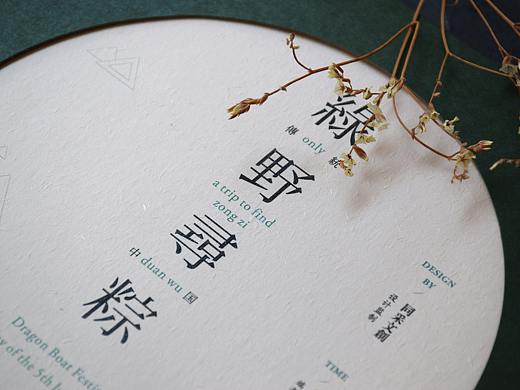 綠
傳 only 統
野
a trip to find
zong zi
尋
中 duan wu 国
粽
Dragon Boat Festi
y of the 5th
DESIGN
BY
同采文創
设计监制
TIME